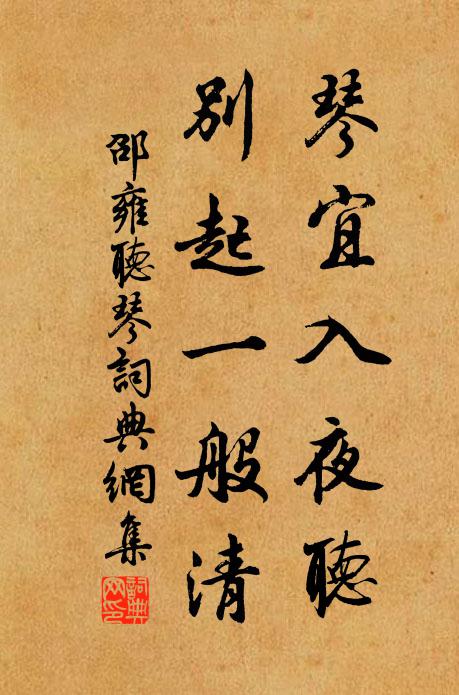 琴宜入夜聽
別起一般清
邵雍聽琴詞典網集
詞典網印